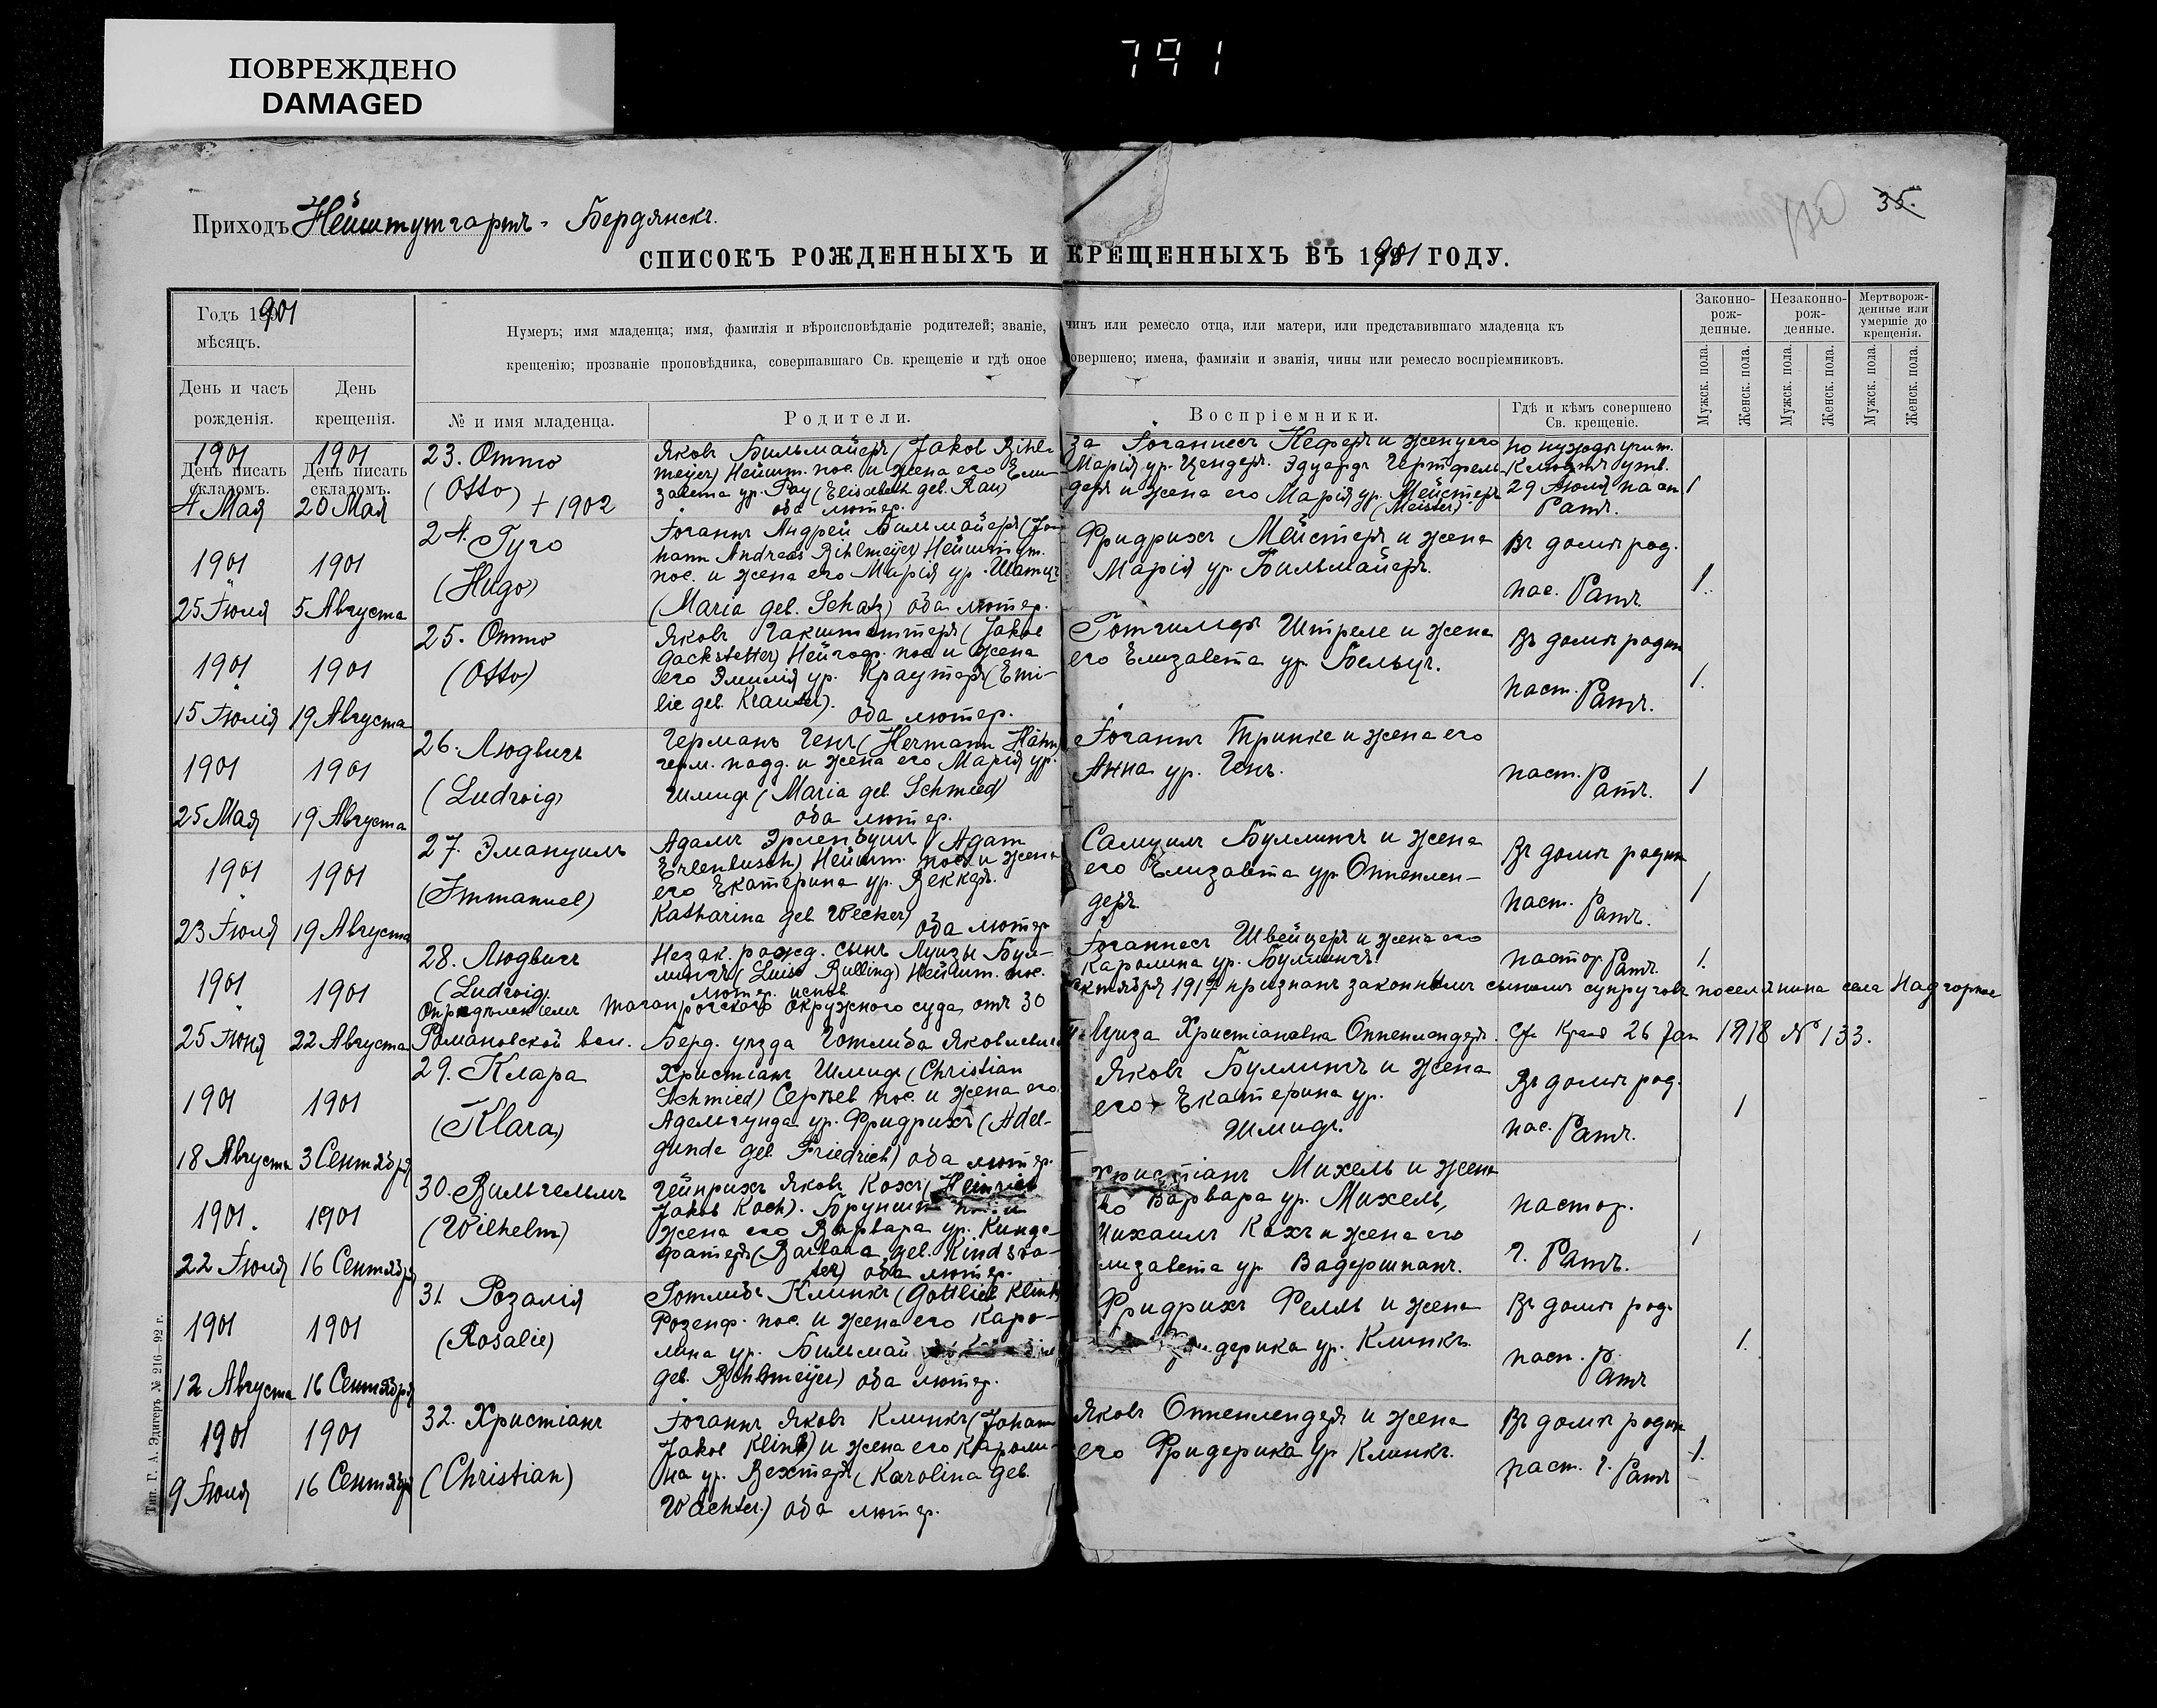 ПОВРЕЖДЕНО
DAMAGED
791
35.
Приходъ Нейштутгартъ - Бердянскъ.
СПИСОКЪ РОЖДЕННЫХЪ И КРЕЩЕННЫХЪ ВЪ 1901 ГОДУ.
Годъ 1901
мѣсяцъ.
День и часъ
рожденія.
День
крещенія.
Нумеръ; имя младенца; имя, фамилія и вѣроисповѣданіе родителей; званіе, чинъ или ремесло отца, или матери, или представившаго младенца къ
крещенію; прозваніе проповѣдника, совершавшаго Св. крещеніе и гдѣ оное совершено; имена, фамиліи и званія, чины или ремесло воспріемниковъ.
№ и имя младенца.
Родители.
Воспріемники.
Гдѣ и кѣмъ совершено
Св. крещеніе.
Законно-
рож-
денные.
Незаконно-
рож-
денные.
Мертворож-
денные или
умершіе до
крещенія.
Мужск. пола.
Женск. пола.
Мужск. пола.
Женск. пола.
Мужск. пола.
Женск. пола.
День писать
складомъ.
День писать
складомъ.
1901
4 Мая
1901
20 Мая
23. Отто
(Otto) + 1902
Яковъ Бильмайеръ (Jakob Bihl-
meijer) Нейшт. пос. и жена его Ели-
завета ур. Рау (Elisabeth geb. Rau)
оба лютер.
за Іоганнесъ Кеферъ и жену его
Марія ур. Цендеръ. Эдуардъ Гертфель-
деръ и жена его Марія ур. Мейстеръ
(Meister)
по нуждѣ учит.
утв.
29 Іюля
Ратъ.
1
1901
25 Іюля
1901
5 Августа
24. Гуго
(Hugo)
Іоганнъ Андрей Бильмайеръ (Jo-
hann Andreas Bihlmeijer) Нейштут.
пос. и жена его Марія ур. Шатцъ
(Maria geb. Schatz) оба лютер.
Фридрихъ Мейстеръ и жена
Марія ур. Бильмайеръ.
Въ домѣ род.
пас. Ратъ.
1.
1901
15 Іюлія
1901
19 Августа
25. Отто
(Otto)
Яковъ Гакштеттеръ (Jakob
Gackstetter) Нейгоф. пос. и жена
его Эмилія ур. Краутеръ (Emi-
lie geb. Krauter).
оба лютер.
Готгильфъ Штреле и жена
его Елизавета ур. Бельцъ.
Въ домѣ родит
паст. Ратъ.
1.
1901
25 Мая
1901
19 Августа
26. Людвигъ
(Ludwig)
Германъ Генъ (Hermann Hähn)
герм. подд. и жена его Марія ур.
Шмидъ (Maria geb. Schmied)
оба лютер.
Іоганнъ Тринке и жена его
Анна ур. Генъ.
паст. Ратъ.
1
1901
23 Іюля
1901
19 Августа
27. Эмануилъ
(Immanuel)
Адамъ Эрленбушъ (Adam
Erlenbusch) Нейшт. пос. и жена
его Екатерина ур. Веккеръ.
Katharina geb Wecker)
оба лютер
Самуилъ Буллингъ и жена
его Елизавета ур. Оппенлен-
деръ.
Въ домѣ родит
паст. Ратъ.
1
1901
25 Іюня
1901
22 Августа
28. Людвигъ
(Ludwig.
Незак. рожд. сынъ Луизы Бул-
лингъ (Luise Bulling) Нейшт. пос.
лютер. испов.
Іоганнесъ Швейцеръ и жена его
Каролина ур. Буллингъ.
пастор Ратъ.
1.
Опредѣленіемъ Таганрогскаго Окружного суда отъ 30
октября 1917 признанъ законнымъ сыномъ супруговъ поселянина села Надгорное
Романовской вол. Берд. уѣзда Готлиба Яковлевича
и Луиза Христіановна Оппенлендеръ. 26 Jan 1918 № 133.
1901
18 Августа
1901
3 Сентября
29. Клара
(Klara)
Христіанъ Шмидъ (Christian
Schmied) Сергѣев. пос. и жена его
Адельгунда ур. Фридрихъ (Adel-
gunde geb Friedrich) оба лютер.
Яковъ Буллингъ и жена
его Екатерина ур.
Шмидъ.
Въ домѣ род.
пас. Ратъ.
1
1901.
22 Іюля
1901
16 Сентября
30. Вильгельмъ
(Wilhelm)
Гейнрихъ Яковъ Кохъ (Heinrich
Jakob Koch). Бруншт. пос. и
жена его Варвара ур. Кинде-
фатеръ (Barbara geb. Kindsva-
ter) оба лютер.
Христіанъ Михель и жена
его Варвара ур. Михель,
Михаилъ Кохъ и жена его
Елизавета ур Вадершпанъ.
пастор.
г. Ратъ.
1
1901
12 Августа
1901
16 Сентября
31. Розалія
(Rosalie)
Готлибъ Клинкъ (Gottlieb Klink)
Розенф. пос. и жена его Каро-
лина ур. Бильмай
geb. Bihlmeijer) оба лютер.
Фридрихъ Фелль и жена
Фридерика ур. Клинкъ.
Въ домѣ род.
паст. Ратъ
1.
1901
9 Іюля
1901
16 Сентября
32. Христіанъ
(Christian)
Іоганнъ Яковъ Клинкъ (Johann
Jakob Klink) и жена его Кароли-
на ур. Вехтеръ (Karolina geb.
Wächter.) оба лютер.
Яковъ Оппенлендеръ и жена
его Фридерика ур Клинкъ.
Въ домѣ родит
паст. г. Ратъ
1.
Тип. Г. А. Эдигеръ № 216—92 г.